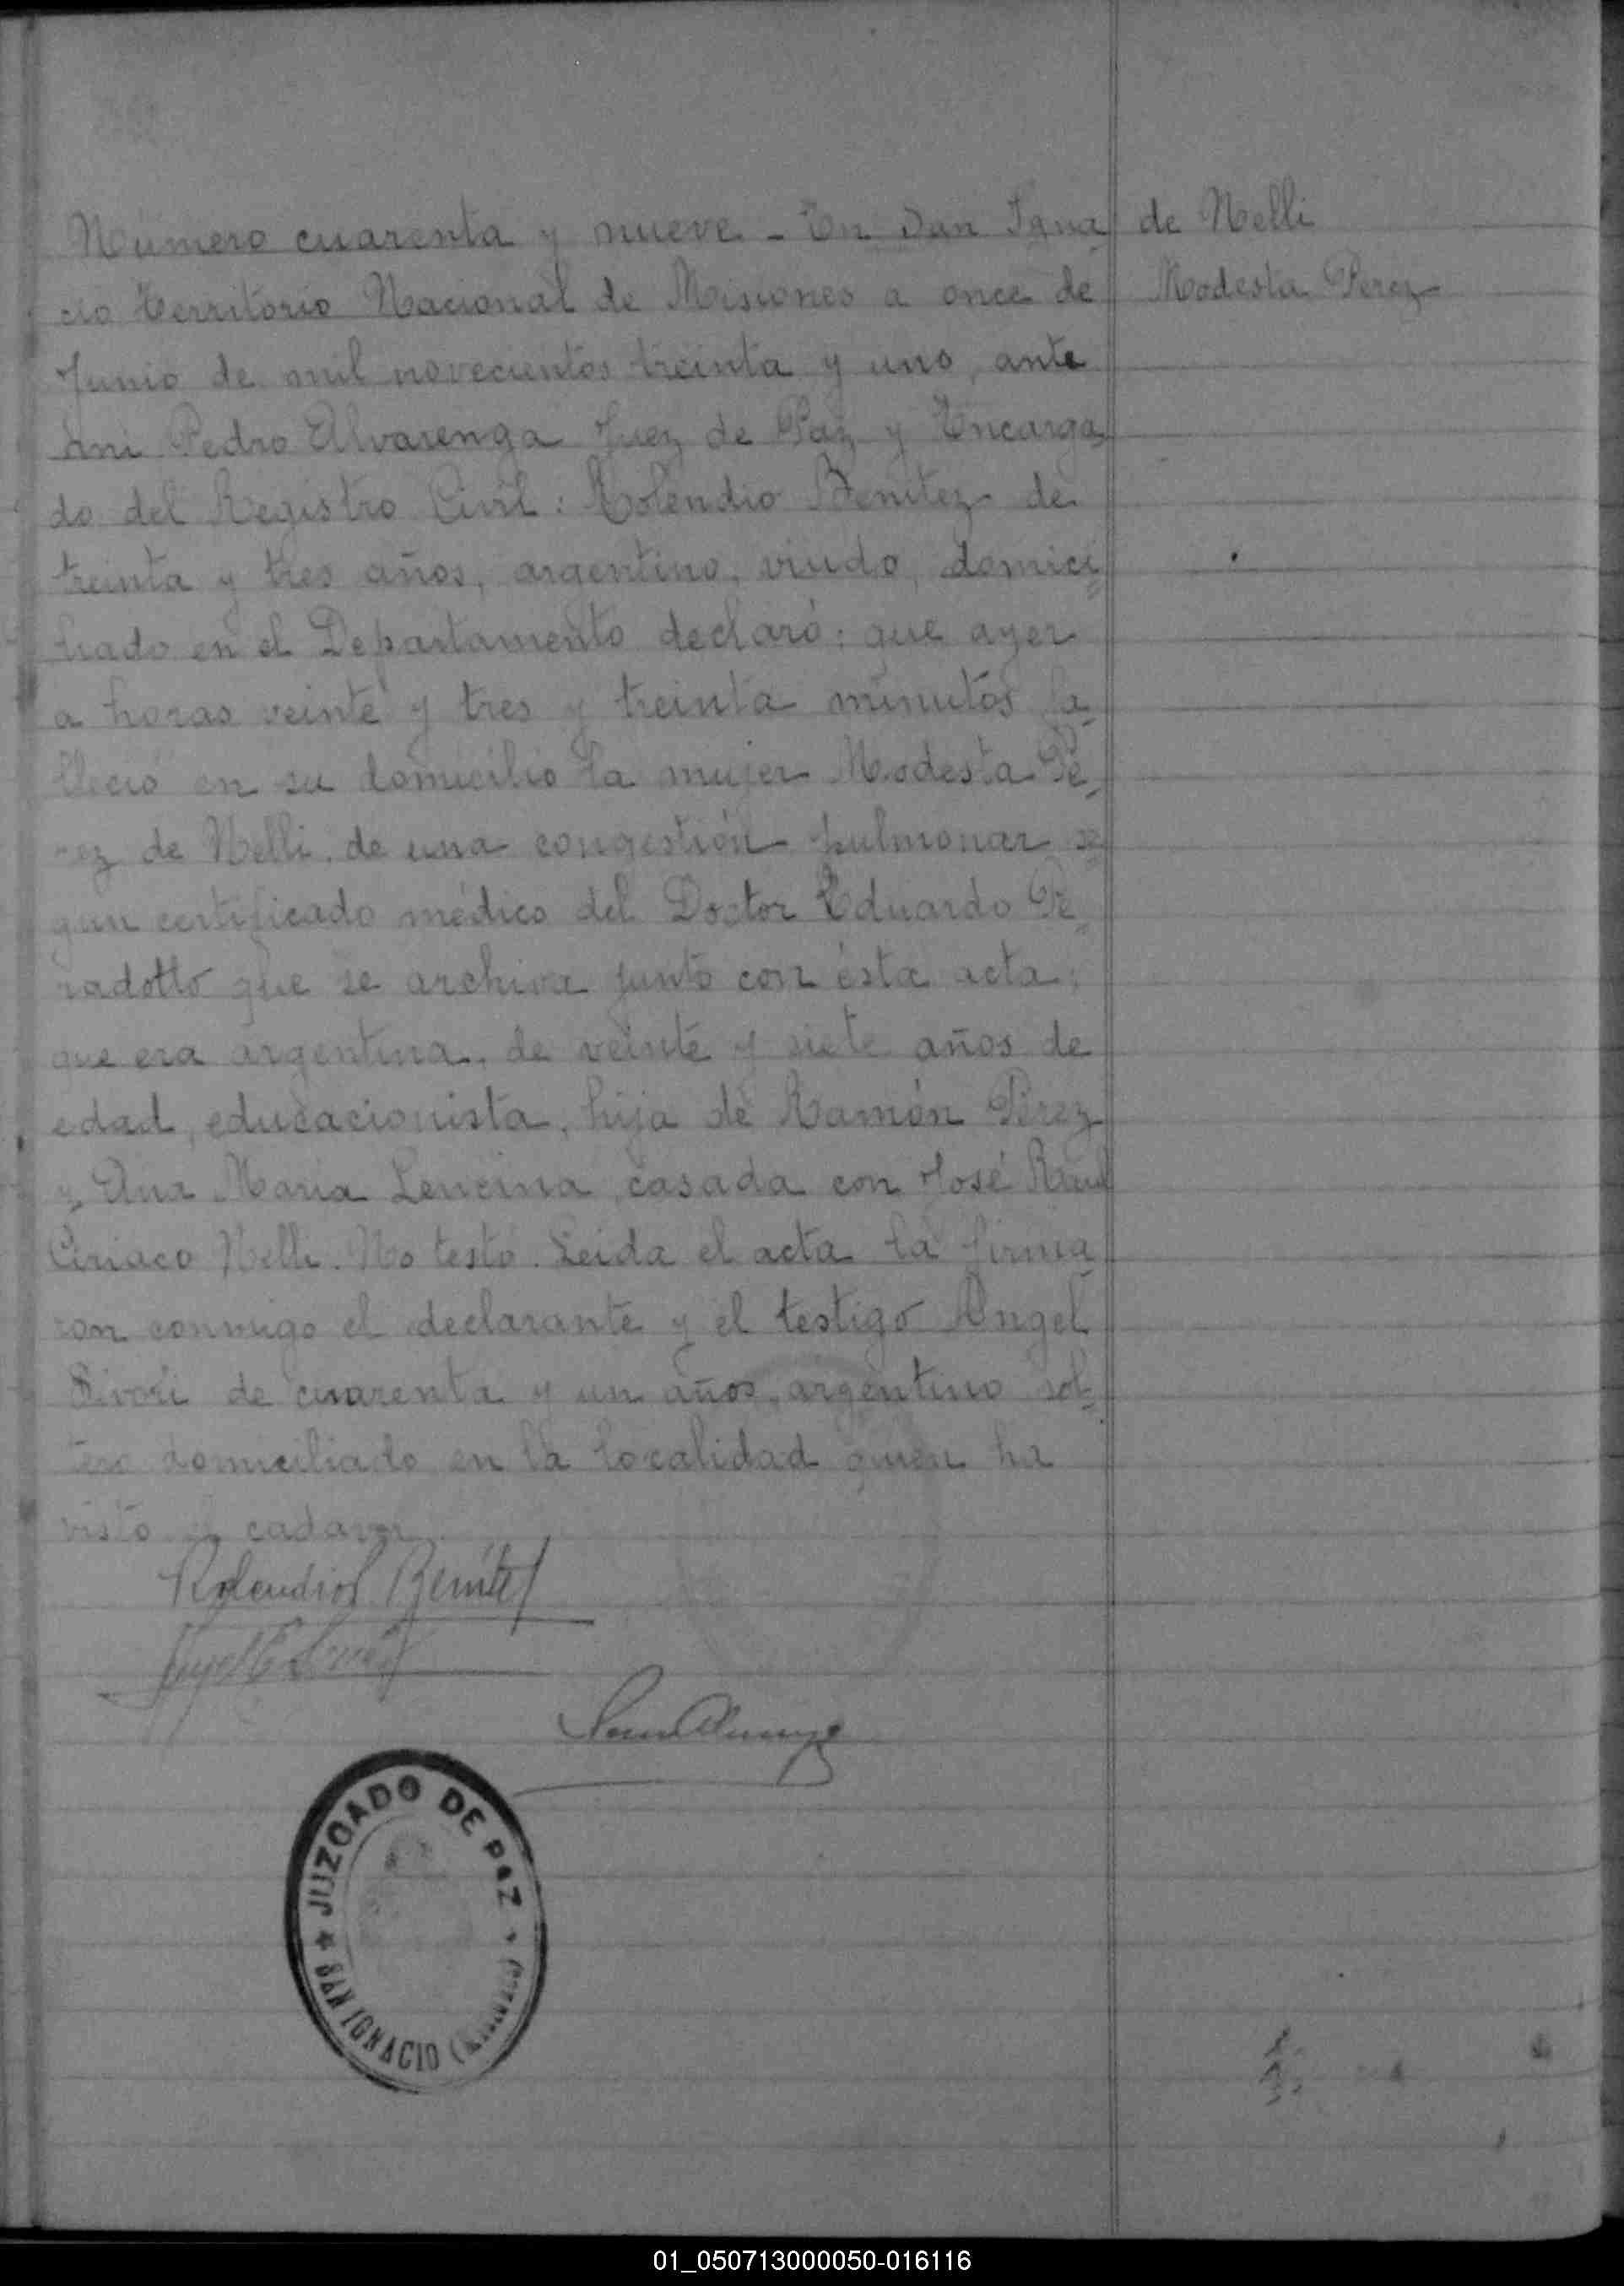 Número cuarenta y nueve - En San Igna
cio Territorio Nacional de Misiones a once de
Junio de mil novecientos treinta y uno, ante
mi Pedro Alvarenga Juez de Paz y Encarga
do del Registro Civil: Rolendio Benitez de
treinta y tres años, argentino, viudo, domici=
liado en el Departamento declaró: que ayer
a horas veinte y tres y treinta minutos fa=
lleció en su domicilio la mujer Modesta Pé=
rez de Nelli, de una congestión pulmonar se=
gun certificado médico del Doctor Eduardo Pe=
radotto que se archiva junto con ésta acta;
que era argentina, de veinte y siete años de
edad, educacionista, hija de Ramón Pérez
y Ana Maria Lencina, casada con José Raul
Ciriaco Nelli. No testó. Leida el acta la firma
ron conmigo el declarante y el testigo Angel
Sivori de cuarenta y un años, argentino sol=
tero domiciliado en la localidad quien ha
visto el cadaver.
de Nelli
Modesta Perez
Rolendio Benitez
JUZGADO DE PAZ
SAN IGNACIO (MISIONES)
01_050713000050-016116